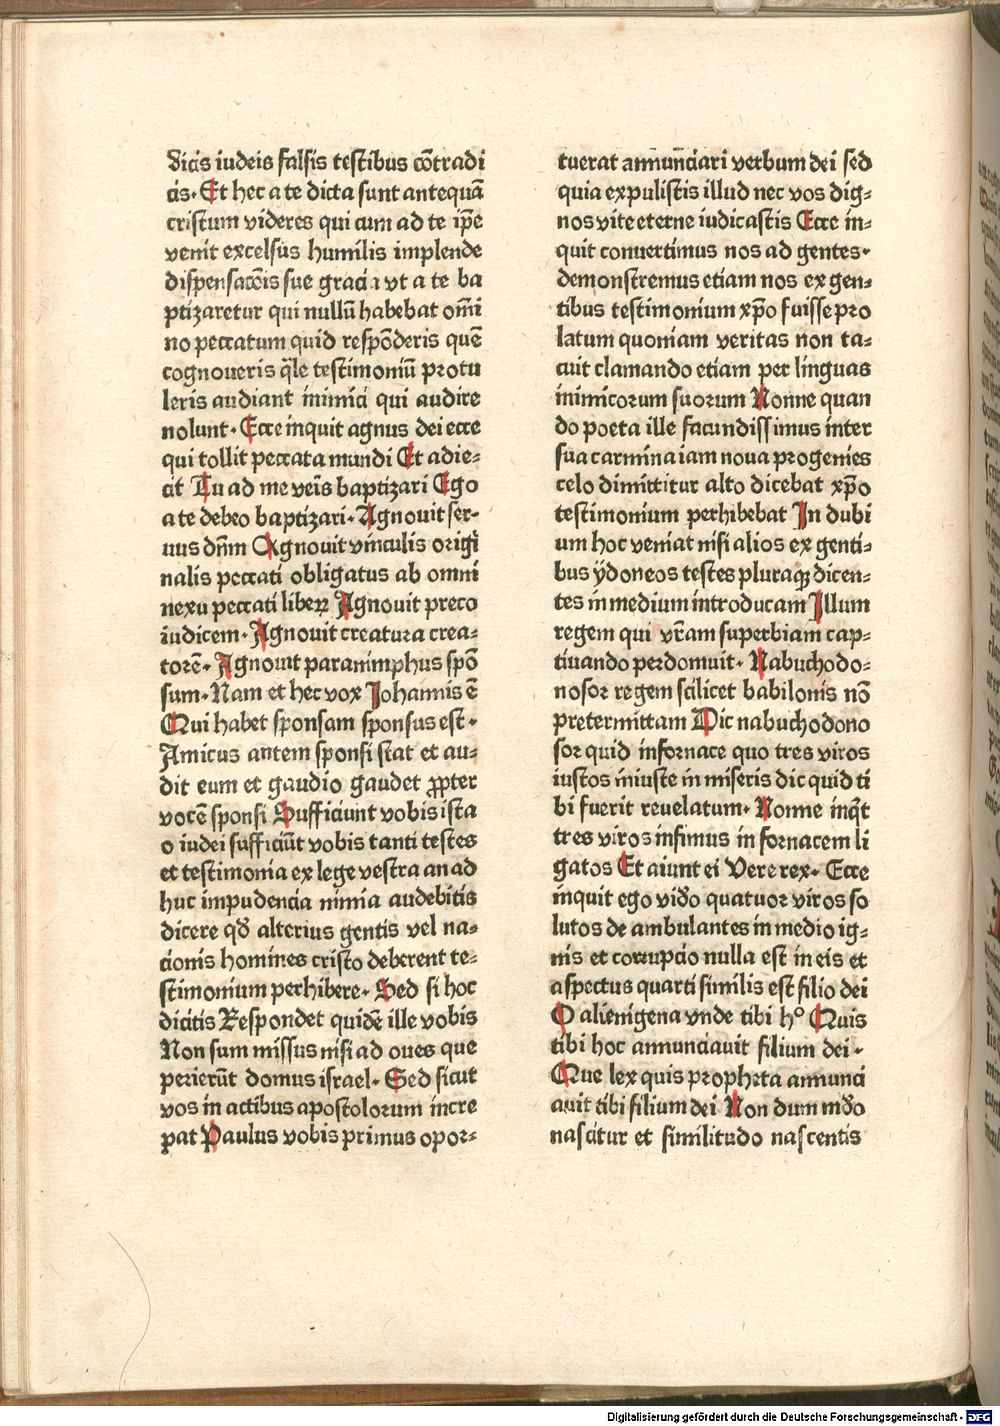 dicis iudeis falsis testibus cōtradi
cis. Et hec a te dicta sunt antequā
cristum videres qui cum ad te ip̄e
venit excelsus humilis implende
dispensacōis sue gracia vt a te ba
ptizaretur qui nullū habebat om̄i
no peccatum quid respōderis quē
cognoueris q̄le testimoniū protu
leris audiant inimici qui audire
nolunt. Ecce inquit agnus dei ecce
qui tollit peccata mundi Et adie-
cit Tu ad me veīs baptizari Ego
a te debeo baptizari. Agnouit ser-
uus dn̄m Agnouit vinculis origī
nalis peccati obligatus ab omni
nexu peccati liberꝝ Agnouit preco
iudicem. Agnouit creatura crea-
torē. Agnouit paranimphus spō
sum. Nam et hec vox Johannis ē
Qui habet sponsam sponsus est.
Amicus autem sponsi stat et au-
dit eum et gaudio gaudet ꝓpter
vocē sponsi Sufficiunt vobis ista
o iudei sufficiūt vobis tanti testes
et testimonia ex lege vestra an ad
huc impudencia nimia audebitis
dicere qđ alterius gentis vel na-
cionis homines cristo deberent te-
stimonium perhibere. Sed si hoc
dicitis Respondet quidē ille vobis
Non sum missus nisi ad oues que
perierūt domus israel. Sed sicut
vos in actibus apostolorum incre
pat Paulus vobis primus opor-
tuerat annunciari verbum dei sed
quia expulistis illud nec vos dig-
nos vite eterne iudicastis Ecce in-
quit conuertimus nos ad gentes.
demonstremus etiam nos ex gen-
tibus testimonium xp̄o fuisse pro
latum quoniam veritas non ta-
cuit clamando etiam per linguas
inimicorum suorum Nonne quan
do poeta ille facundissimus inter
sua carmina iam noua progenies
celo dimittitur alto dicebat xp̄o
testimonium perhibebat In dubi
um hoc veniat nisi alios ex genti-
bus ydoneos testes pluraqꝫ dicen-
tes in medium introducam Illum
regem qui vr̄am superbiam cap-
tiuando perdomuit. Nabuchodo-
nosor regem scilicet babilonis nō
pretermittam Dic nabuchodono
sor quid in fornace quo tres viros
iustos iniuste in miseris dic quid ti
bi fuerit reuelatum. Nonne inq̄t
tres viros infimus in fornacem li
gatos Et aiunt ei Vere rex. Ecce
inquit ego viđo quatuor viros so
lutos de ambulantes in medio ig-
nis et corrupcio nulla est in eis et
aspectus quarti similis est filio dei
O alienigena vnde tibi hº Quis
tibi hoc annunciauit filium dei.
Que lex quis propheta annunci
auit tibi filium dei Non dum mđo
nascitur et similitudo nascentis
Digitalisierung gefördert durch die Deutsche Forschungsgemeinschaft - DFG